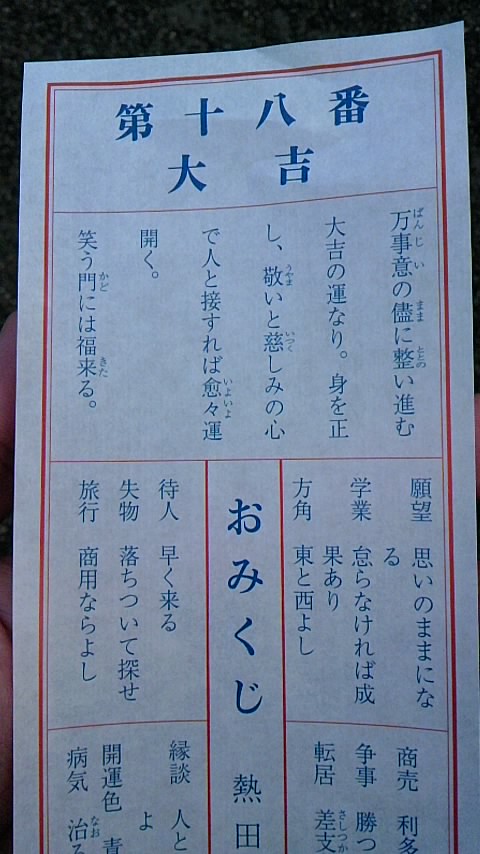 第十八番
大吉
万事意の儘に整い進む
大吉の運なり。身を正
し、敬いと慈しみの心
で人と接すれば愈々運
開く。
笑う門には福来る。
願望 思いのままにな
る
学業 怠らなければ成
果あり
方角 東と西よし
おみくじ 熱田
待人 早く来る
失物 落ちついて探せ
旅行 商用ならよし
商売 利多
争事 勝つ
転居 差支
縁談 人と
よ
開運色 青
病気 治る